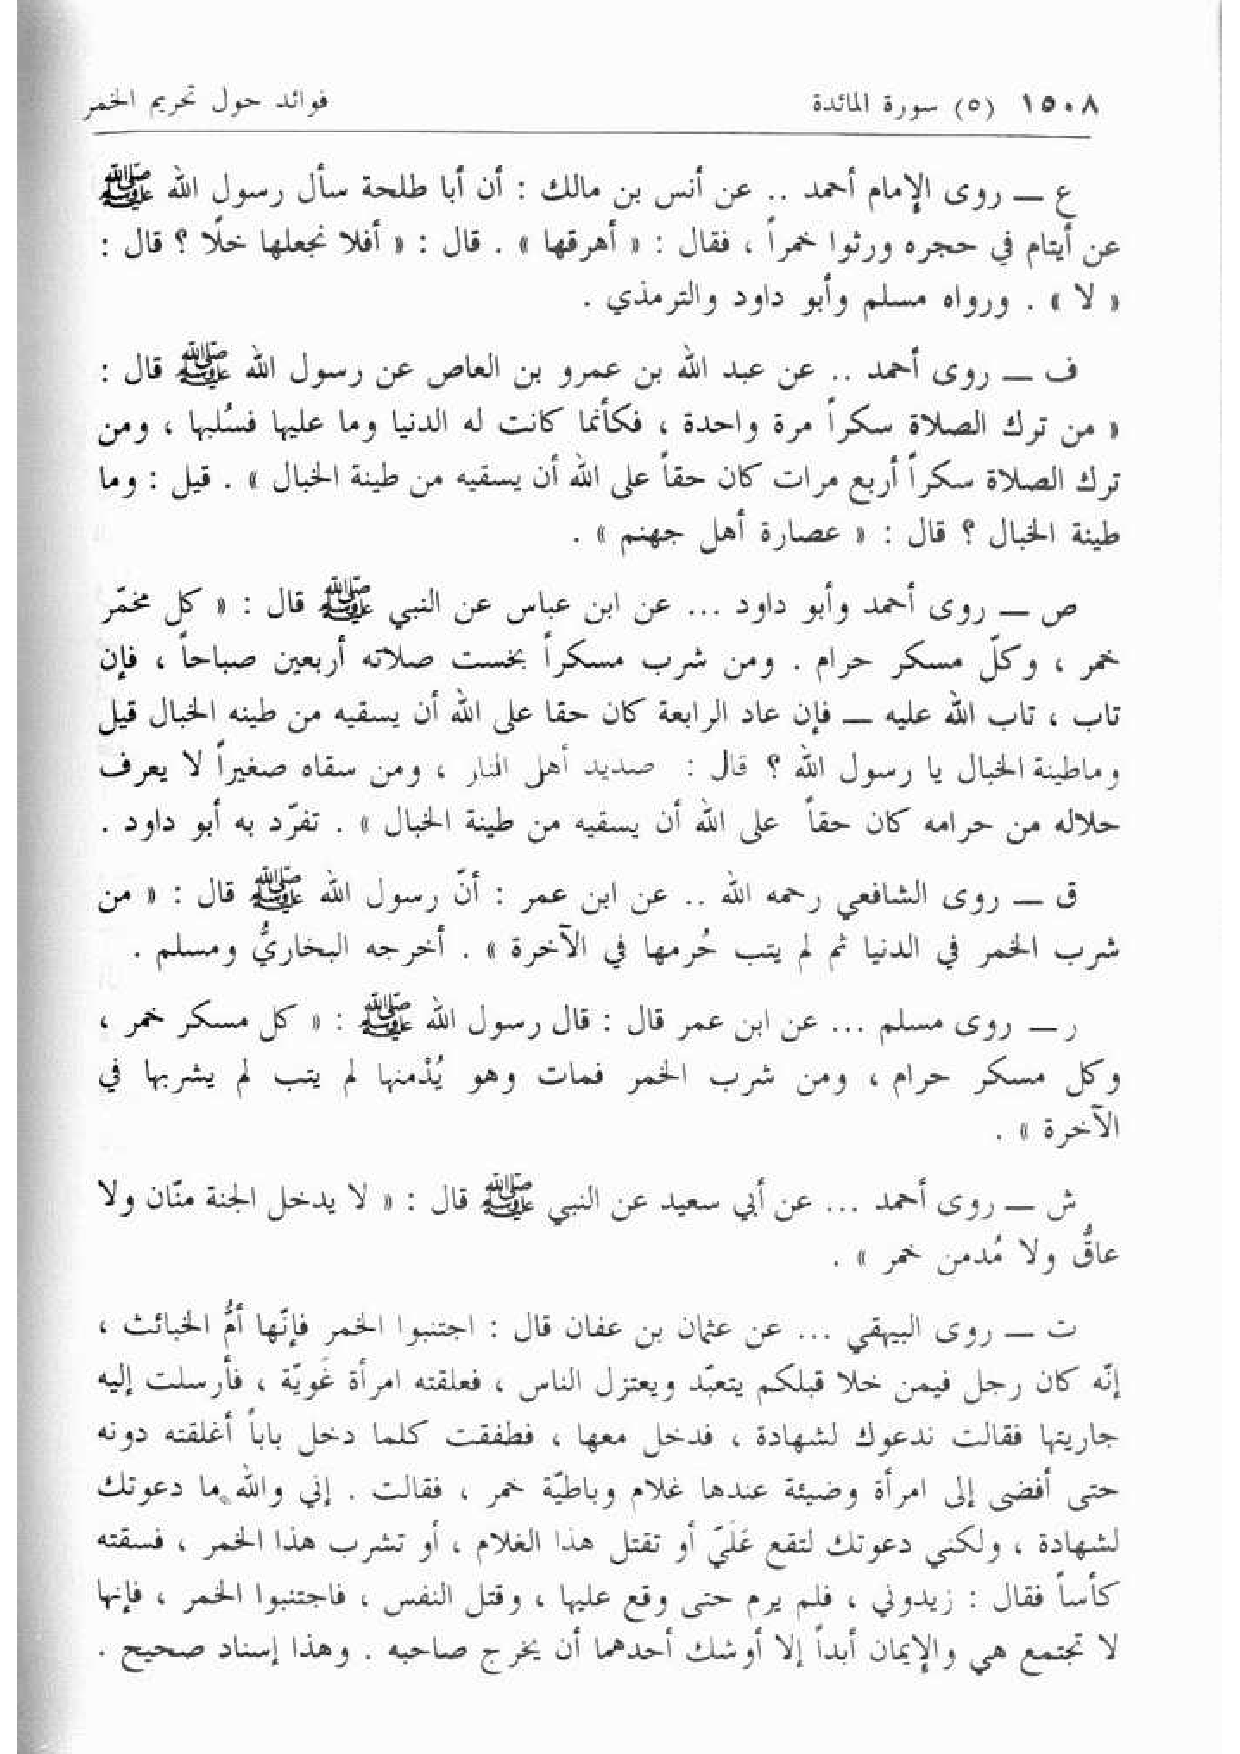 ١٥٠٨ (٥) سورة المائدة فوائد حول تحريم الخمر
ع ــ روى الإمام أحمد .. عن أنس بن مالك : أن أبا طلحة سأل رسول الله ﷺ
عن أيتام في حجره ورثوا خمراً ، فقال : « أهرقها » . قال : « أفلا نجعلها خلًا ؟ قال :
« لا » . ورواه مسلم وأبو داود والترمذي .
ف ــ روى أحمد .. عن عبد الله بن عمرو بن العاص عن رسول الله ﷺ قال :
« من ترك الصلاة سكراً مرة واحدة ، فكأنما كانت له الدنيا وما عليها فسُلبها ، ومن
ترك الصلاة سكراً أربع مرات كان حقاً على الله أن يسقيه من طينة الخبال » . قيل : وما
طينة الخبال ؟ قال : « عصارة أهل جهنم » .
ص ــ روى أحمد وأبو داود ... عن ابن عباس عن النبي ﷺ قال : « كل مخمّر
خمر ، وكلّ مسكر حرام . ومن شرب مسكراً بخست صلاته أربعين صباحاً ، فإن
تاب ، تاب الله عليه ــ فإن عاد الرابعة كان حقا على الله أن يسقيه من طينه الخبال قيل
وماطينة الخبال يا رسول الله ؟ قال : صديد أهل النار ، ومن سقاه صغيراً لا يعرف
حلاله من حرامه كان حقاً على الله أن يسقيه من طينة الخبال » . تفرّد به أبو داود .
ق ــ روى الشافعي رحمه الله .. عن ابن عمر : أنّ رسول الله ﷺ قال : « من
شرب الخمر في الدنيا ثم لم يتب حُرمها في الآخرة » . أخرجه البخاريُّ ومسلم .
ر ــ روى مسلم ... عن ابن عمر قال : قال رسول الله ﷺ : « كل مسكر خمر ،
وكل مسكر حرام ، ومن شرب الخمر فمات وهو يُدْمنها لم يتب لم يشربها في
الآخرة » .
ش ــ روى أحمد ... عن أبي سعيد عن النبي ﷺ قال : « لا يدخل الجنة منّان ولا
عاقٌّ ولا مُدمن خمر » .
ت ــ روى البيهقي ... عن عثمان بن عفان قال : اجتنبوا الخمر فإنّها أمُّ الخبائث ،
إنّه كان رجل فيمن خلا قبلكم يتعبّد ويعتزل الناس ، فعلقته امرأة غَويّة ، فأرسلت إليه
جاريتها فقالت ندعوك لشهادة ، فدخل معها ، فطفقت كلما دخل باباً أغلقته دونه
حتى أفضى إلى امرأة وضيئة عندها غلام وباطيّة خمر ، فقالت . إني والله ما دعوتك
لشهادة ، ولكني دعوتك لتقع عَلَيّ أو تقتل هذا الغلام ، أو تشرب هذا الخمر ، فسقته
كأساً فقال : زيدوني ، فلم يرم حتى وقع عليها ، وقتل النفس ، فاجتنبوا الخمر ، فإنها
لا تجتمع هي والإيمان أبداً إلا أوشك أحدهما أن يخرج صاحبه . وهذا إسناد صحيح .